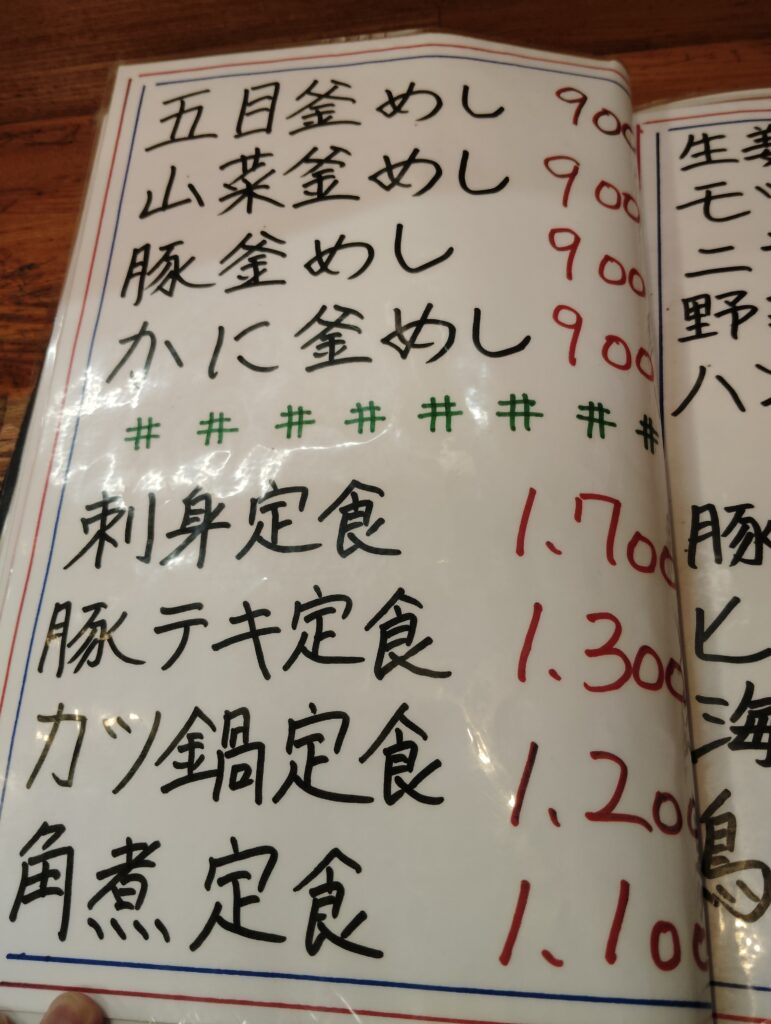 五目釜めし 900
山菜釜めし 900
豚釜めし 900
かに釜めし 900
# # # # # # # #
刺身定食 1.700
豚テキ定食 1.300
カツ鍋定食 1.200
角煮定食 1.100
生姜
モツ
ニラ
野
ハン
豚
ヒ
海
鳥